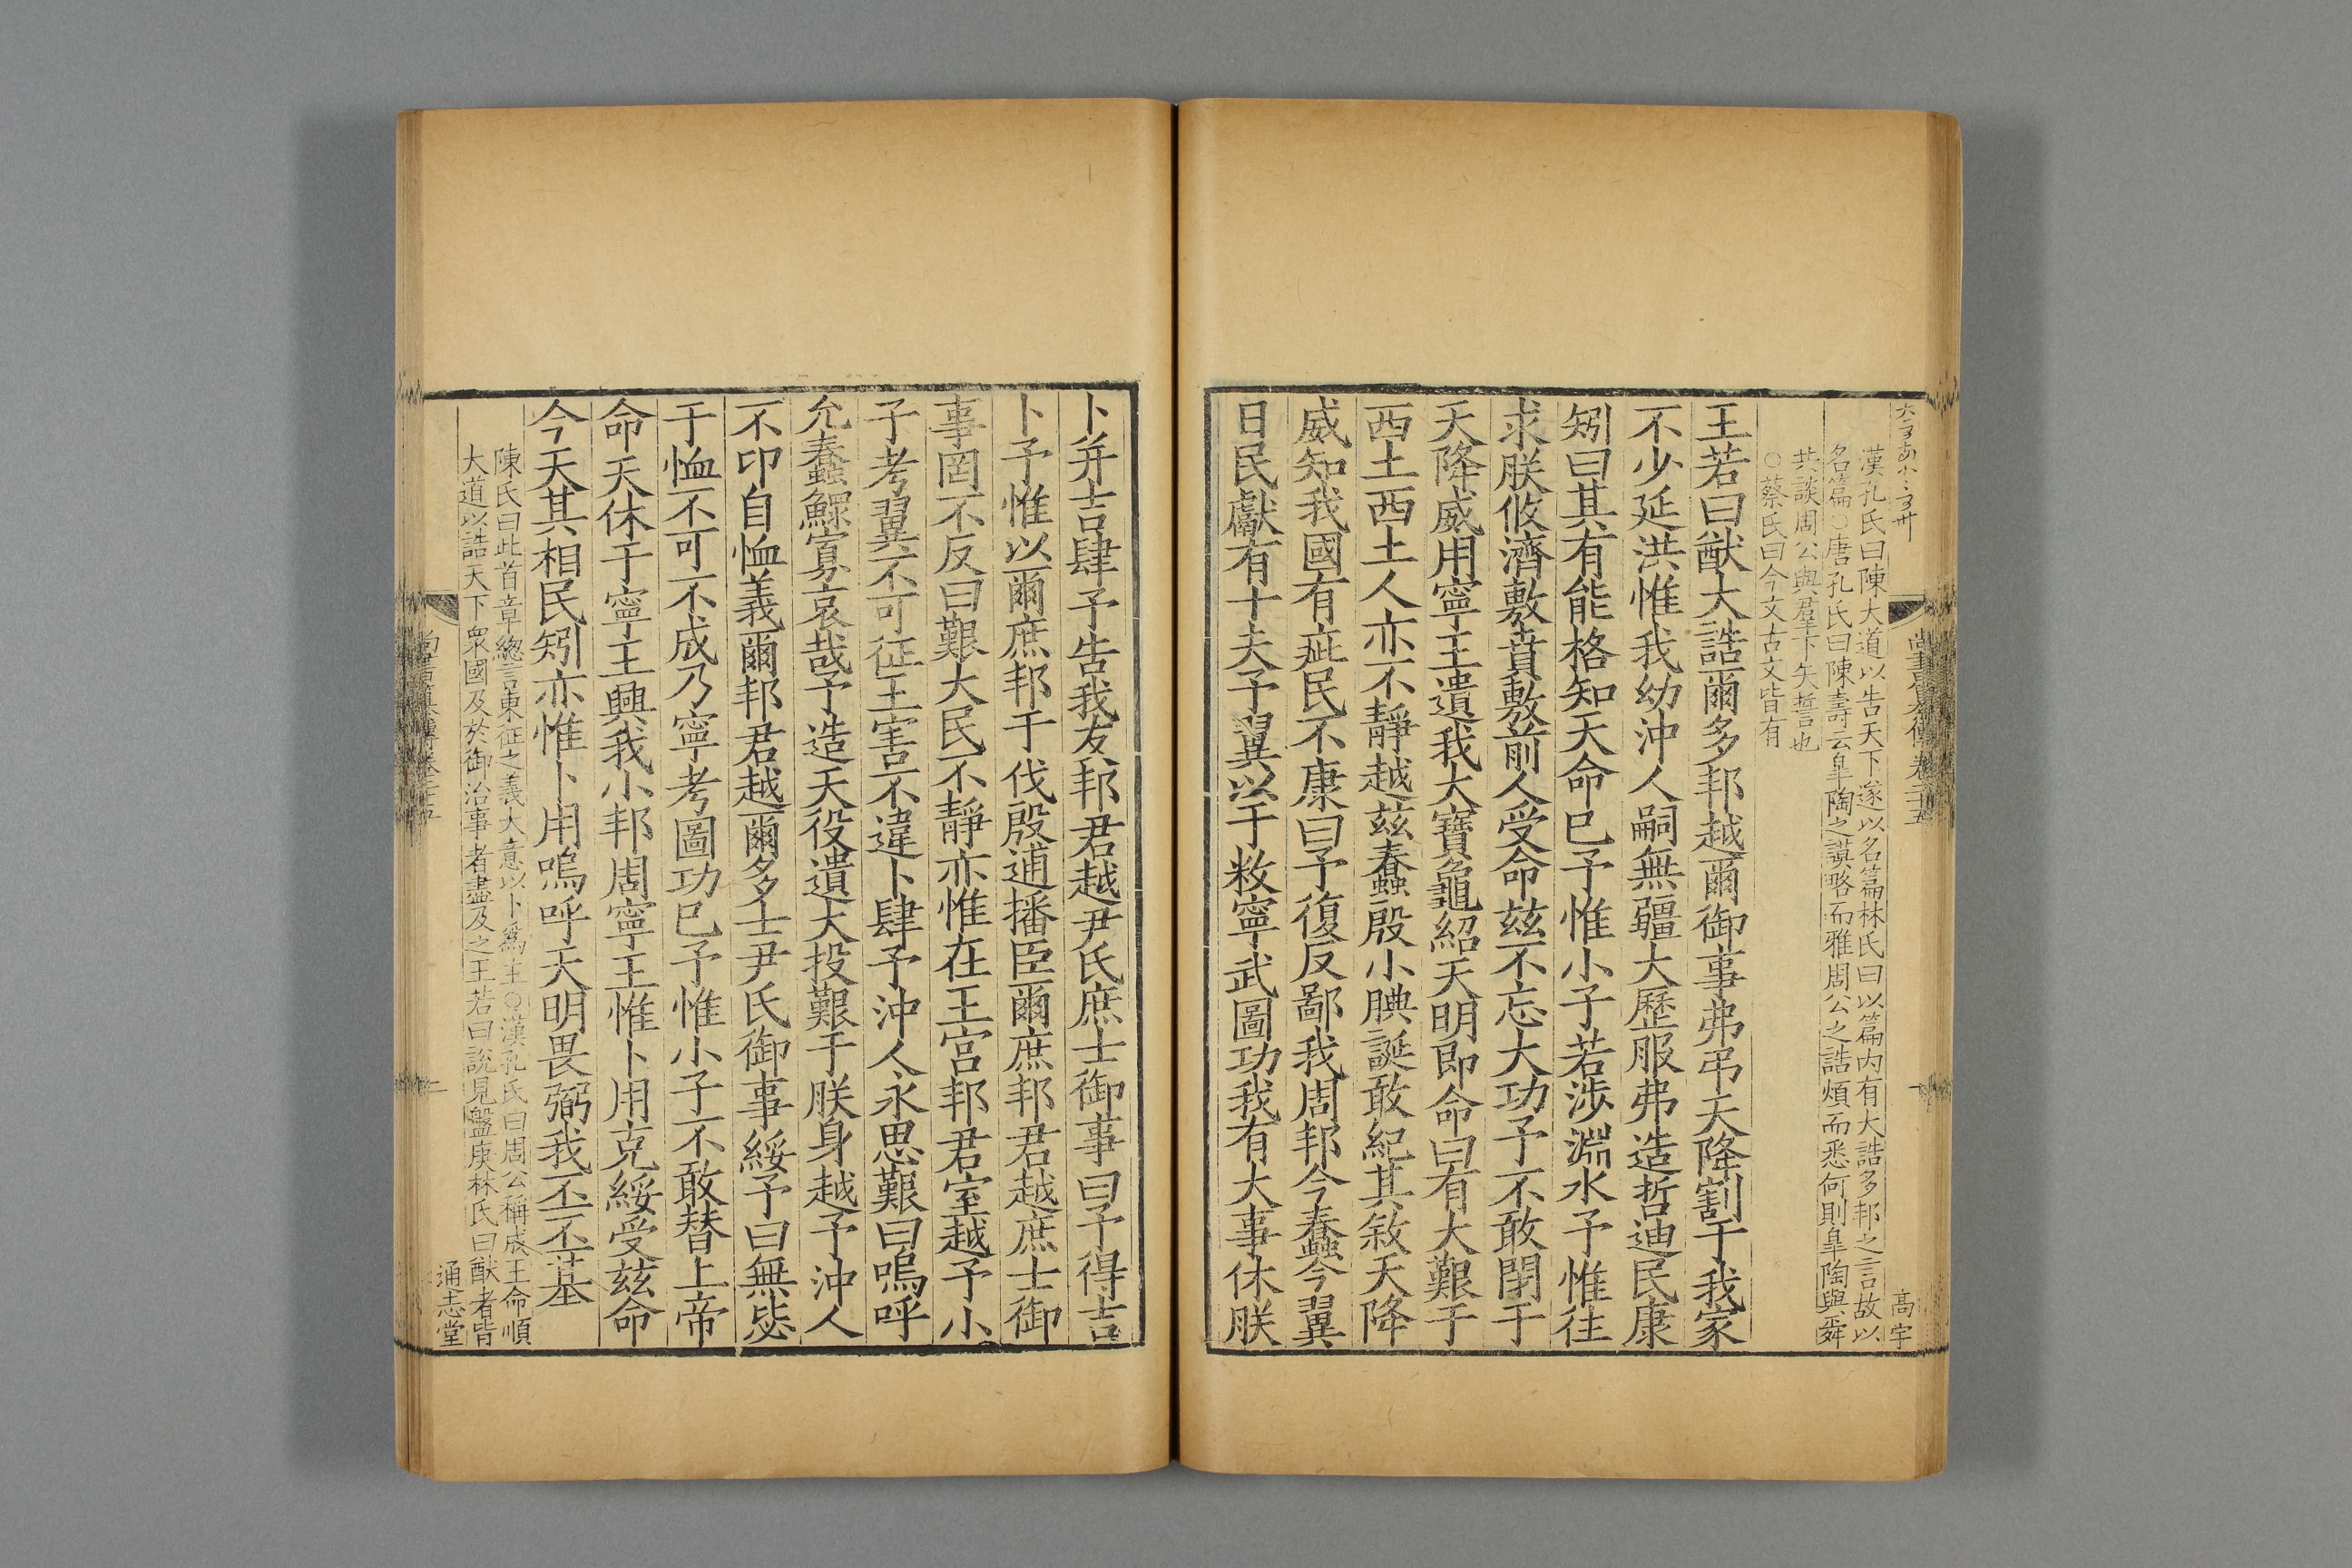 漢孔氏曰陳大道以告天下遂以名篇林氏曰以篇内有大誥多邦之言故以
名篇○唐孔氏曰陳壽云皐陶之謨略而雅周公之誥煩而悉何則皐陶與舜
共談周公與羣下矢誓也
○蔡氏曰今文古文皆有
王若曰猷大誥爾多邦越爾御事弗弔天降割于我家
不少延洪惟我幼沖人嗣無疆大歷服弗造哲迪民康
矧曰其有能格知天命已予惟小子若涉淵水予惟往
求朕攸濟敷賁敷前人受命茲不忘大功予不敢閉于
天降威用寧王遺我大寶龜紹天明即命曰有大艱于
西土西土人亦不靜越茲蠢殷小腆誕敢紀其敘天降
威知我國有疵民不康曰予復反鄙我周邦今蠢今翼
日民獻有十夫予翼以于敉寧武圖功我有大事休朕
高宇
卜并吉肆予告我友邦君越尹氏庶士御事曰予得吉
卜予惟以爾庶邦于伐殷逋播臣爾庶邦君越庶士御
事罔不反曰艱大民不靜亦惟在王宫邦君室越予小
子考翼不可征王害不違卜肆予沖人永思艱曰嗚呼
允蠢鰥寡哀哉予造天役遺大投艱于朕身越予沖人
不卬自恤義爾邦君越爾多士尹氏御事綏予曰無毖
于恤不可不成乃寧考圖功已予惟小子不敢替上帝
命天休于寧王興我小邦周寧王惟卜用克綏受茲命
今天其相民矧亦惟卜用嗚呼天明畏弼我丕丕基
陳氏曰此首章緫言東征之義大意以卜爲主○漢孔氏曰周公稱成王命順
大道以誥天下衆國及於御治事者盡及之王若曰說見盤庚林氏曰猷者皆
通志堂